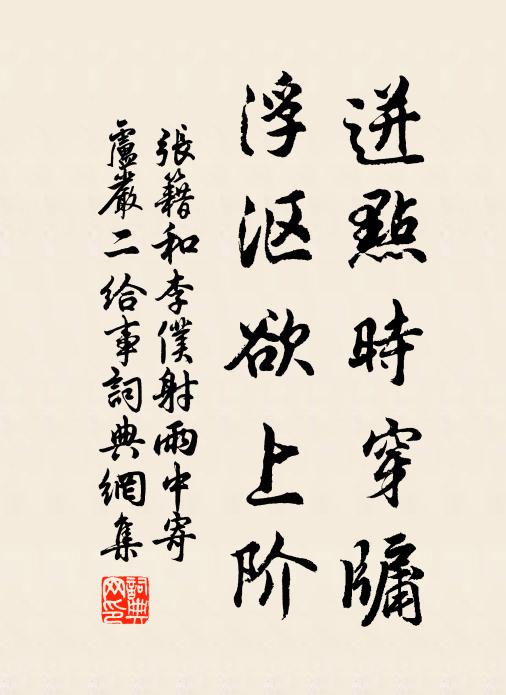 迸點時穿牖
浮沤欲上阶
張籍和李僕射雨中寄
盧嚴二給事詞典網集
詞典网印